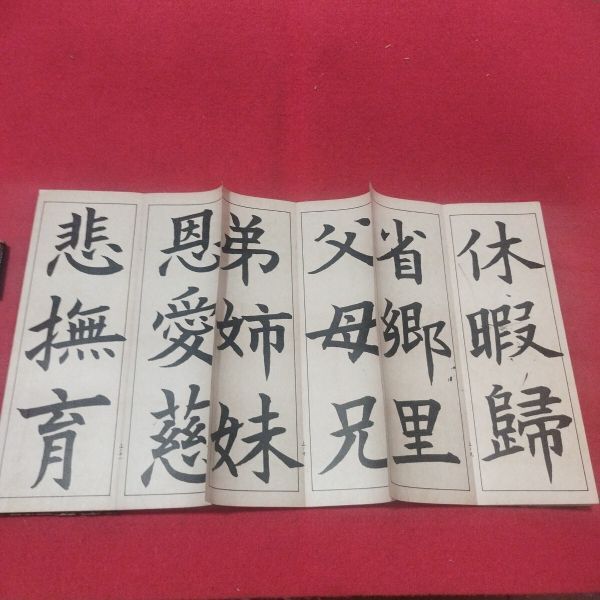 休暇歸
省鄉里
父母兄
弟姉妹
恩愛慈
悲撫育